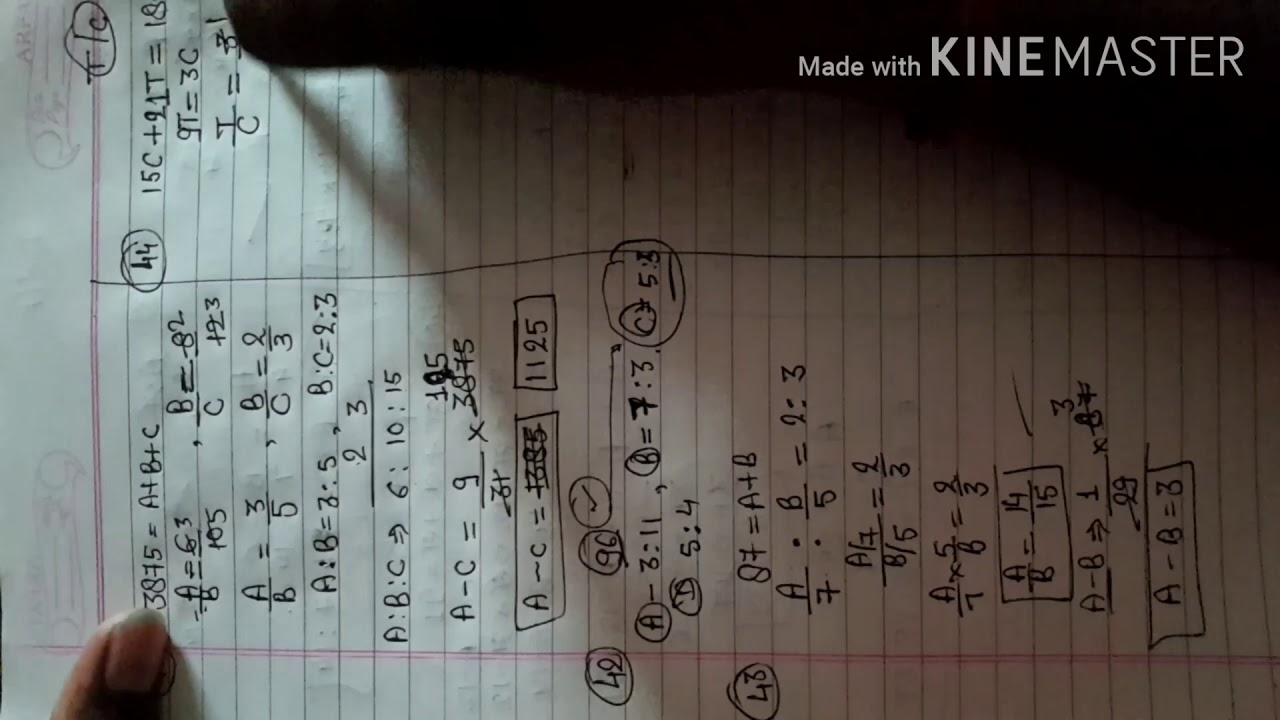 Made with KINEMASTER
3875 = A+B+C
A/B = 6/10 3/5 , B/C = 8/12 2/3
A/B = 3/5 , B/C = 2/3
A:B = 3:5 , B:C = 2:3
2 3
A:B:C ⇒ 6:10:15
A-C = 9/31 × 3875 125
A-C = 1125
42 96 ✓
A - 3:11 , B = 7:3 C 5:3
D 5:4
43 87 = A+B
A/7 : B/5 = 2:3
A/7 / B/5 = 2/3
A/7 × 5/B = 2/3
A/B = 14/15
A-B ⇒ 1/29 × 87 3
A-B = 3
T/C
44 15C + 21T = 18
9T = 3C
T/C = 3 1